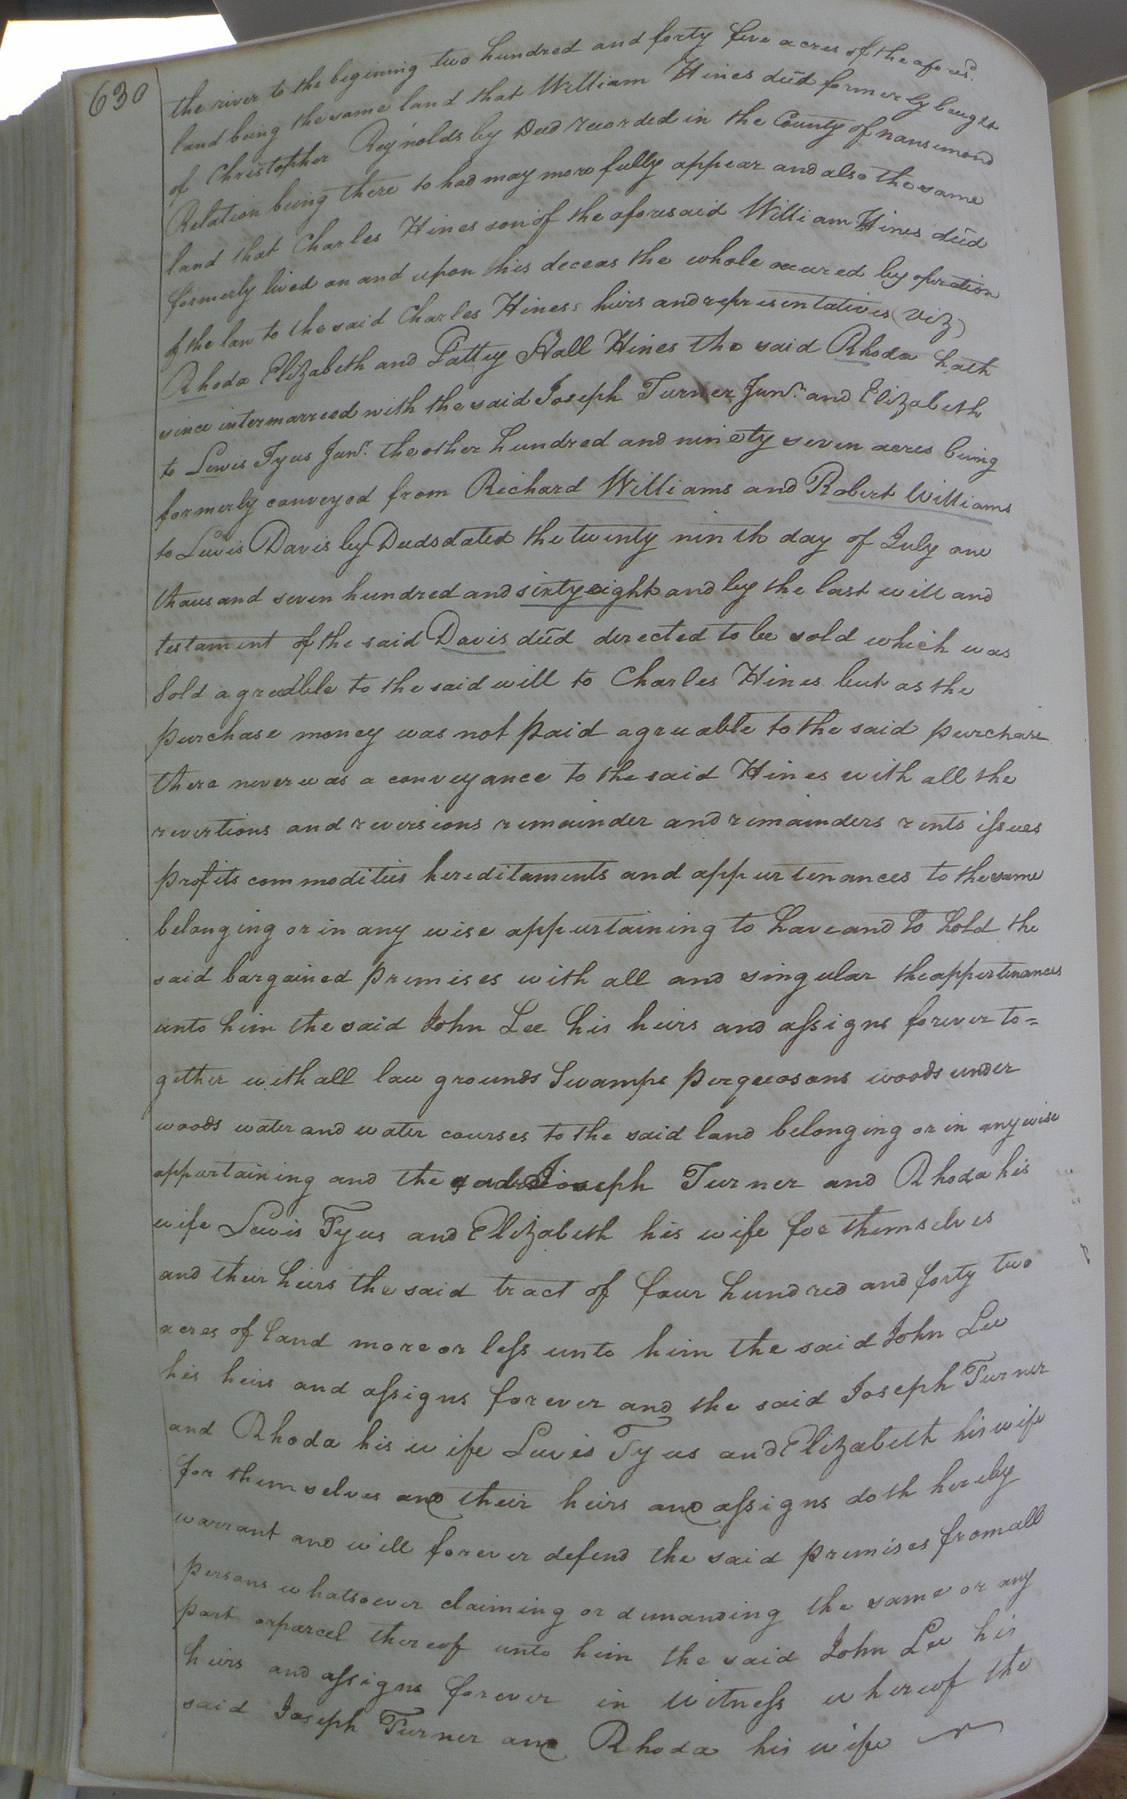 630
the river to the begining two hundred and forty five acres of the afores.d
land being the same land that William Hines decd formerly bought
of Christopher Reynolds by Deed recorded in the County of nansemond
Relation being there to had may more fully appear and also the same
land that Charles Hines son of the aforesaid William Hines decd
formerly lived on and upon this deceas the whole accured by opration
of the law to the said Charles Hines's heirs and representatives (Viz)
Rhoda Elizabeth and Pattey Hall Hines the said Rhoda hath
since intermarreed with the said Joseph Turner Junr. and Elizabeth
to Lewis Tyus Junr. the other hundred and ninety seven acres being
formerly conveyed from Richard Williams and Robert Williams
to Lewis Davis by Deeds dated the twenty ninth day of July one
thousand seven hundred and sixty eight and by the last will and
testament of the said Davis decd derected to be sold which was
Sold agreeable to the said will to Charles Hines but as the
purchase money was not paid agreeable to the said purchase
there never was a conveyance to the said Hines with all the
revertions and reversions remainder and remainders rents issues
profits commodities hereditaments and appurtenances to the same
belonging or in any wise appurtaining to have and to hold the
said bargained premises with all and singular the appertinances
unto him the said John Lee his heirs and assigns forever to=
gether with all law grounds Swamps perqueosons woods under
woods water and water courses to the said land belonging or in any wise
appurtaining and the said Joseph Turner and Rhoda his
wife Lewis Tyus and Elizabeth his wife for themselves
and their heirs the said tract of four hundred and forty two
acres of land more or less unto him the said John Lee
his heirs and assigns forever and the said Joseph Turner
and Rhoda his wife Lewis Tyus and Elizabeth his wife
for themselves and their heirs and assigns doth hereby
warrant and will forever defend the said premises from all
persons whatsoever claiming or demanding the same or any
part or parcel thereof unto him the said John Lee his
heirs and assigns forever in witness whereof the
said Joseph Turner and Rhoda his wife